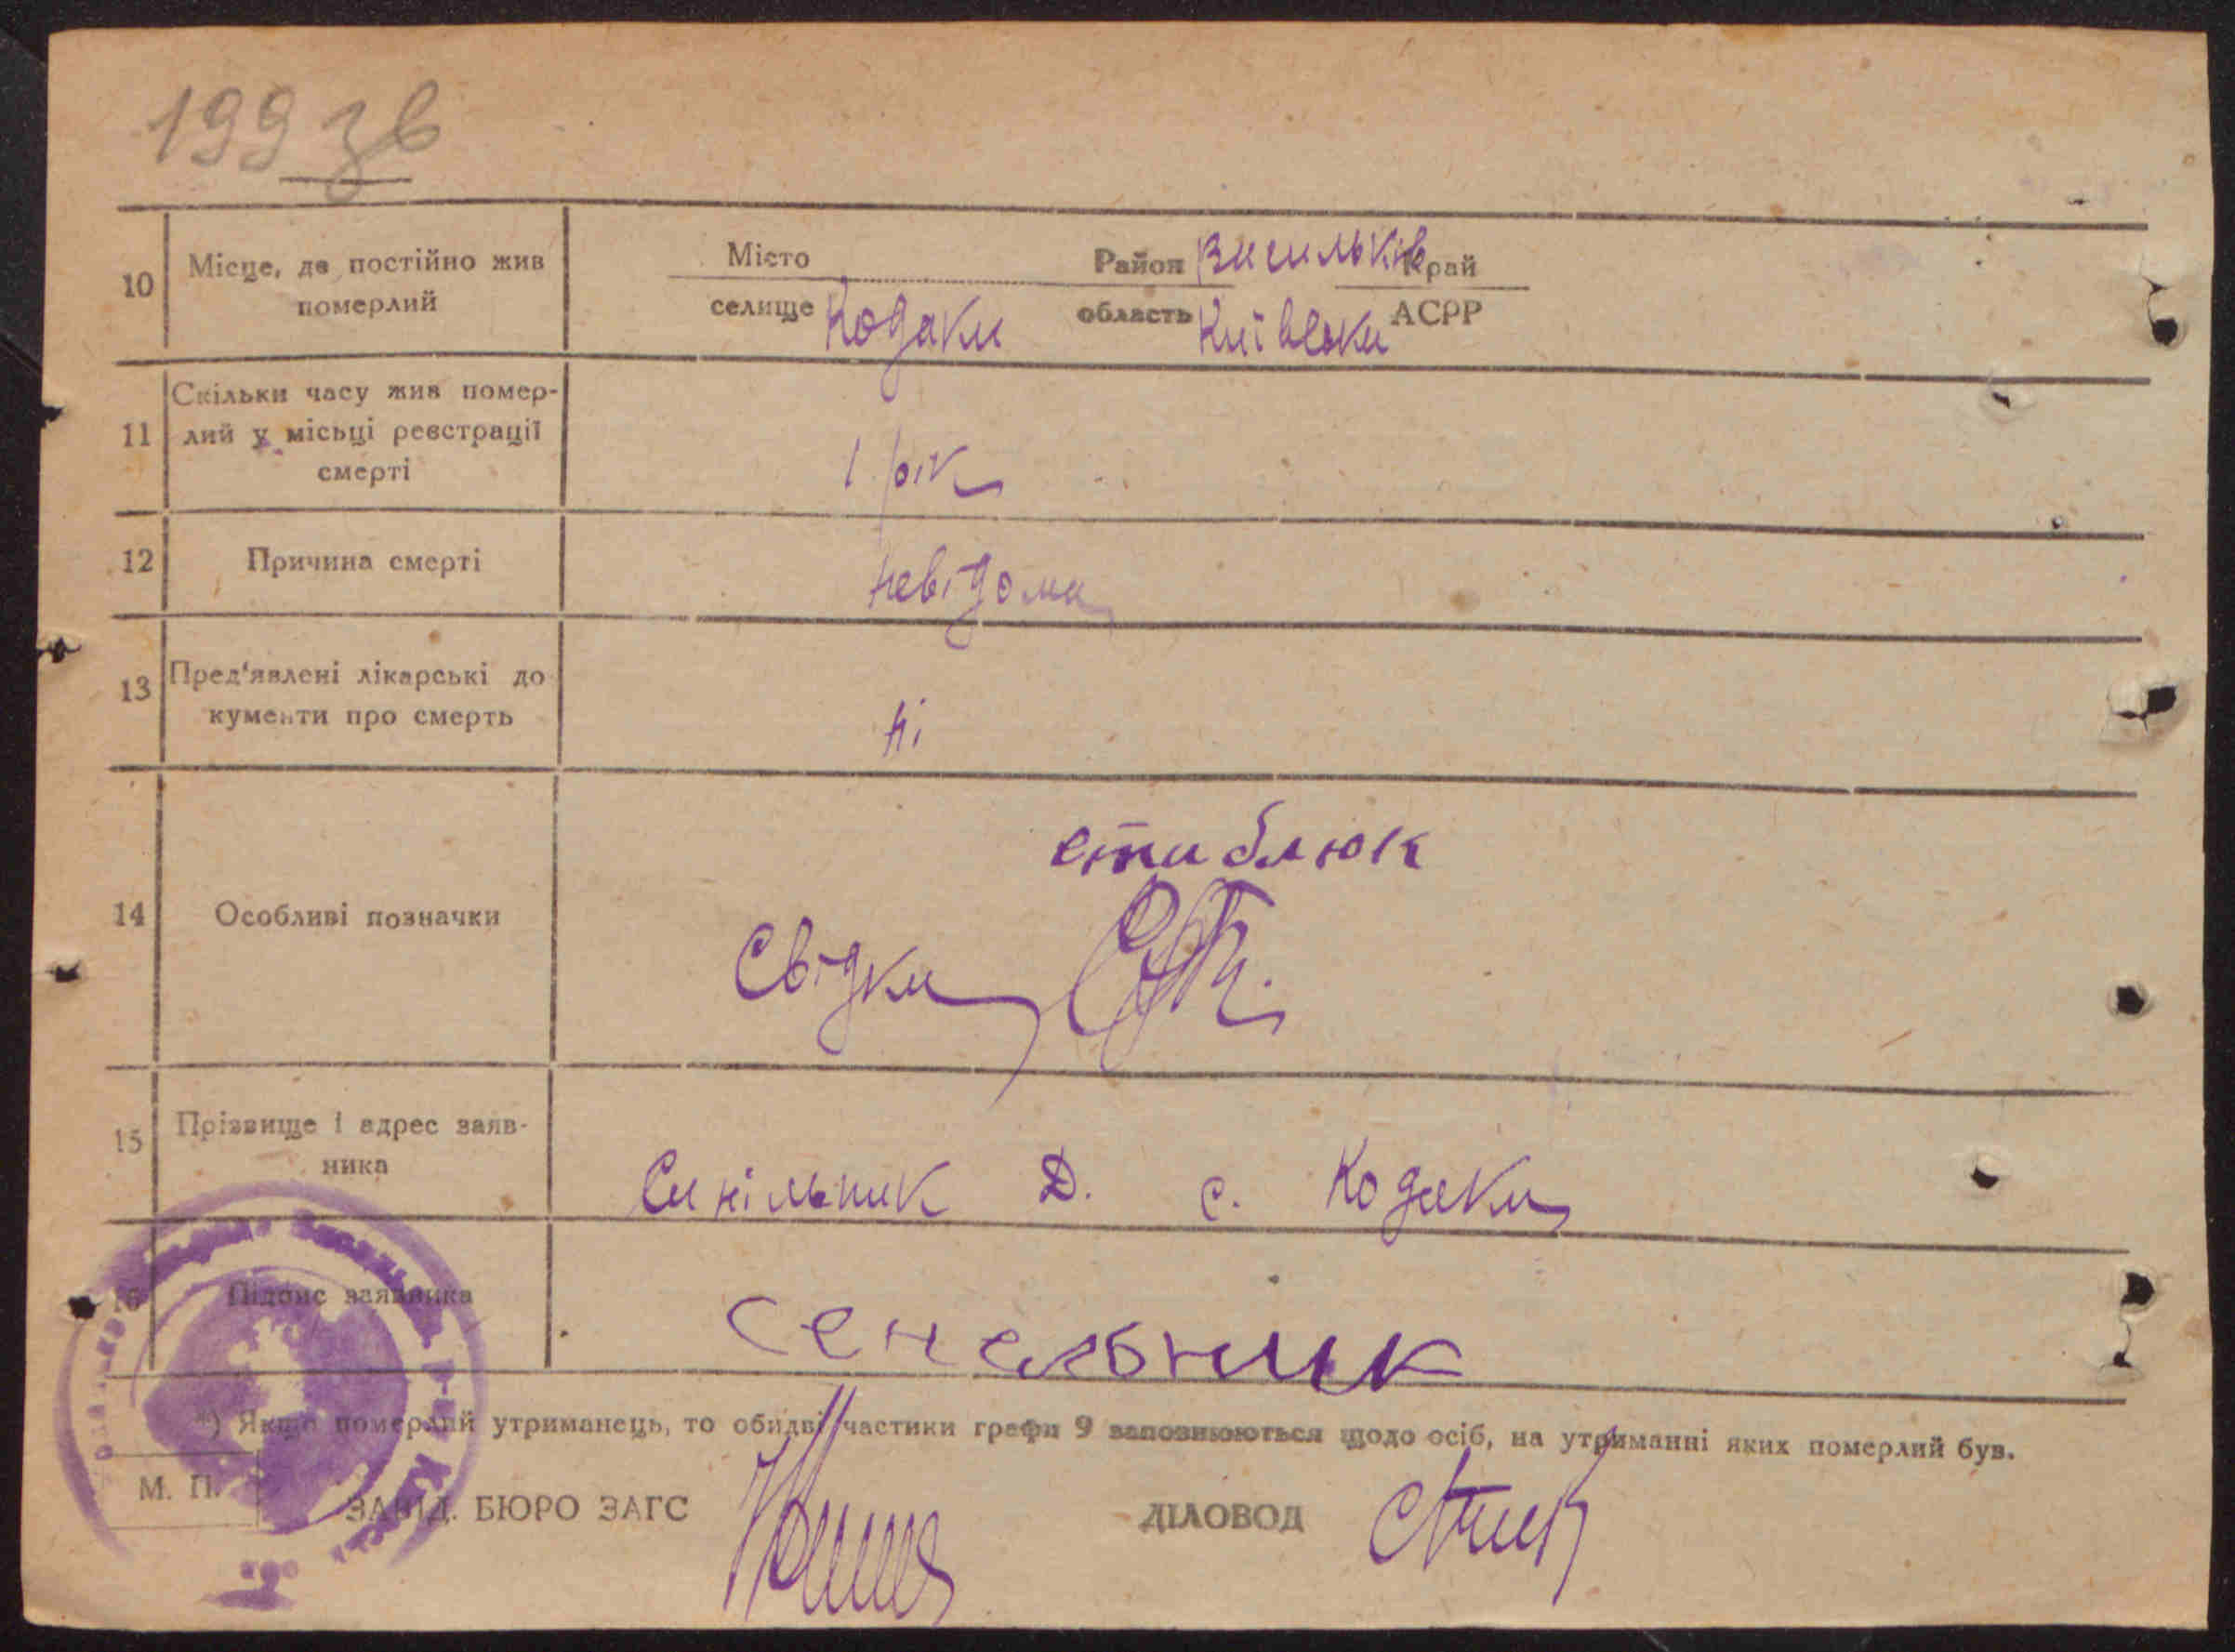 199 зв
10 Місце, де постійно жив померлий
Місто Район Васильків Край
селище Кодаки область Київська АСРР
11 Скільки часу жив помер-
лий у місьці реєстрації
смерті
1 рік
12 Причина смерті невідома
13 Пред'явлені лікарські до
кументи про смерть
ні
14 Особливі позначки
стаблюк
Свідки
15 Прізвище і адрес заяв-
ника
Синільник Д. с. Кодаки
16 Підпис заявника
сенельник
*) Якщо померлий утриманець, то обидві частини графи 9 заповнюються щодо осіб, на утриманні яких померлий був.
М. П.
ЗАВІД. БЮРО ЗАГС ДІЛОВОД